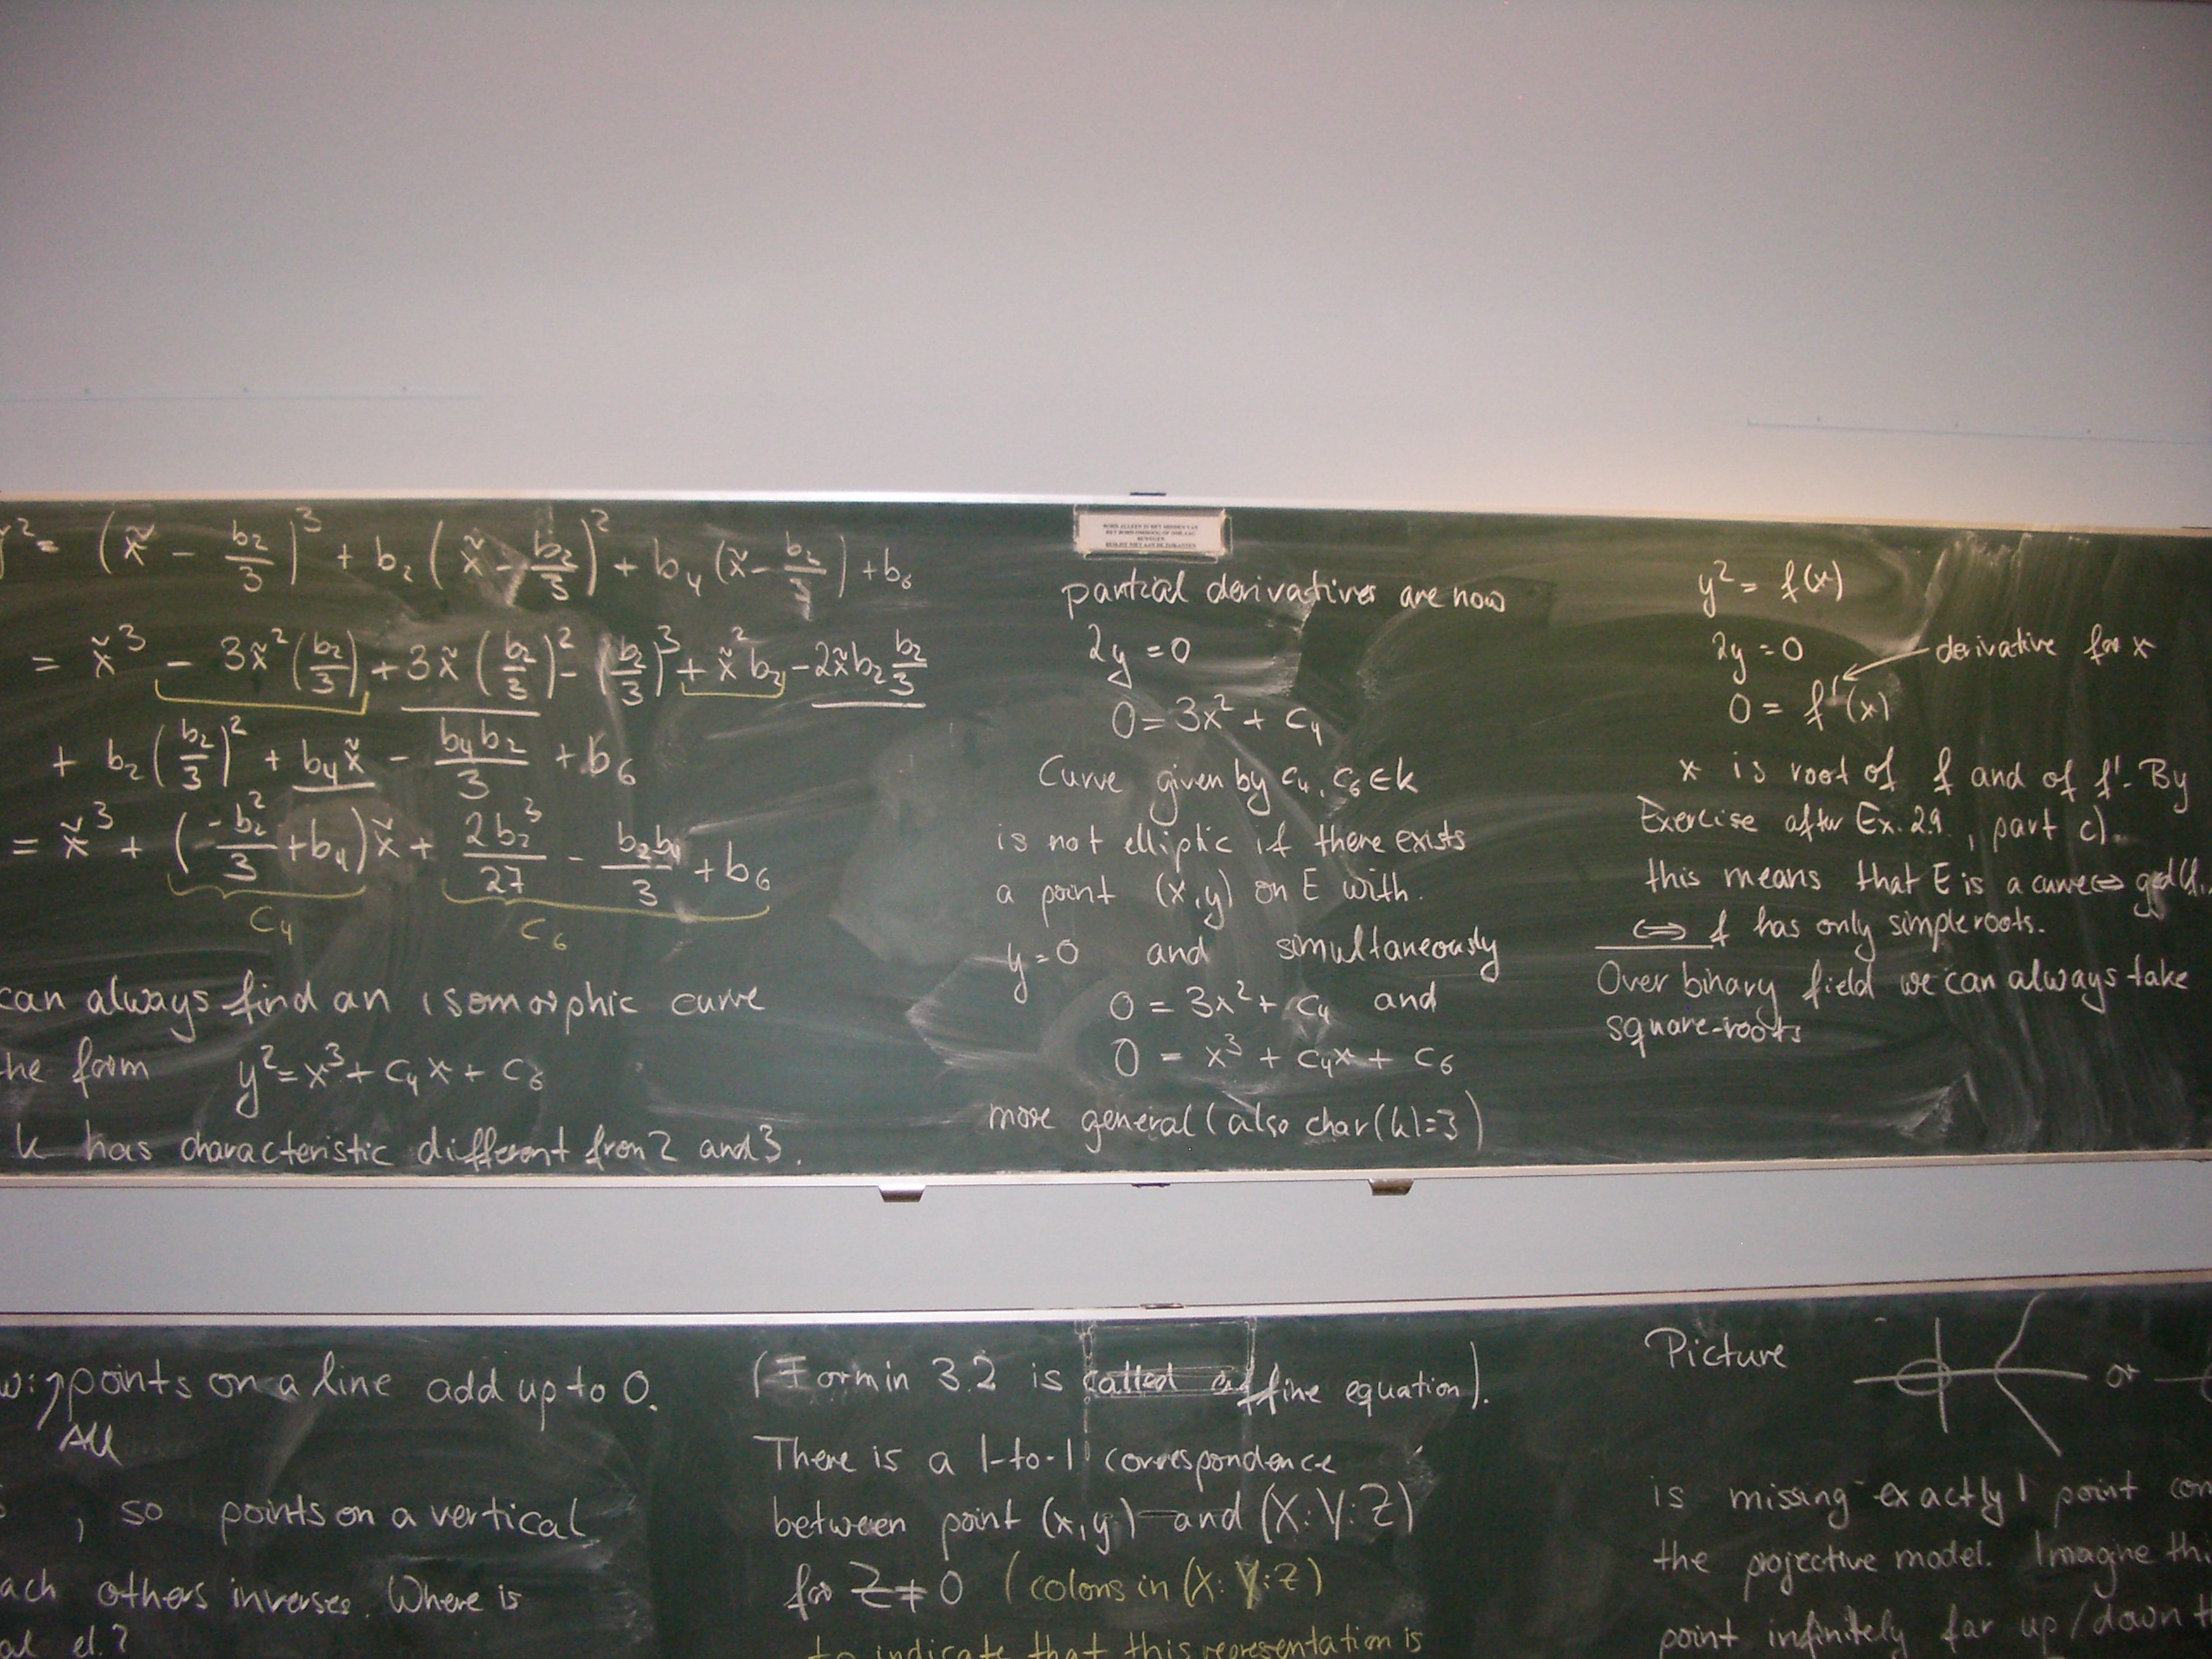 y² = (x̃ - b₂/3)³ + b₂(x̃ - b₂/3)² + b₄(x̃ - b₂/3) + b₆
= x̃³ - 3x̃²(b₂/3) + 3x̃(b₂/3)² - (b₂/3)³ + x̃²b₂ - 2x̃b₂ b₂/3
+ b₂(b₂/3)² + b₄x̃ - b₄b₂/3 + b₆
= x̃³ + (-b₂²/3 + b₄)x̃ + 2b₂³/27 - b₂b₄/3 + b₆
C₄ C₆
can always find an isomorphic curve
he form y² = x³ + c₄x + c₆
k has characteristic different from 2 and 3.
partial derivatives are now
2y = 0
0 = 3x² + c₄
Curve given by c₄, c₆ ∈ k
is not elliptic if there exists
a point (x,y) on E with.
y = 0 and simultaneously
0 = 3x² + c₄ and
0 = x³ + c₄x + c₆
more general (also char(k)=3)
y² = f(x)
2y = 0
derivative for x
0 = f'(x)
x is root of f and of f'. By
Exercise after Ex. 2.9, part c).
this means that E is a curve ⇔ gcd(f,
⇔ f has only simple roots.
Over binary field we can always take
square-roots
points on a line add up to 0.
All
, so points on a vertical
ach others inverses. Where is
al el.?
(Form in 3.2 is called affine equation).
There is a 1-to-1 correspondence
between point (x,y) and (X:Y:Z)
for Z≠0 (colons in (X:Y:Z)
to indicate that this representation is
Picture
or
is missing exactly 1 point
the projective model. Imagine
point infinitely far up/down